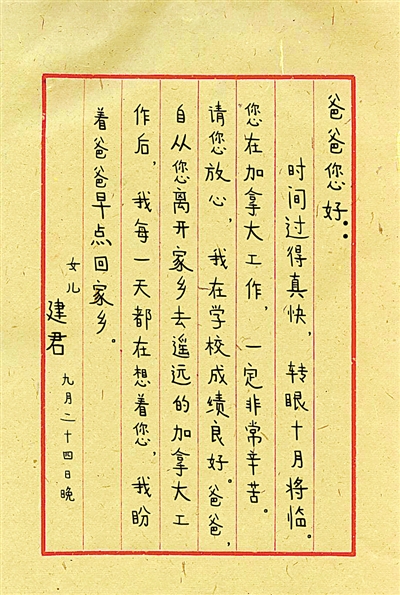 爸爸您好：
时间过得真快，转眼十月将临。
您在加拿大工作，一定非常辛苦。
请您放心，我在学校成绩良好。爸爸，
自从您离开家乡去遥远的加拿大工
作后，我每一天都在想着您，我盼
着爸爸早点回家乡。
女儿
建君
九月二十四日晚